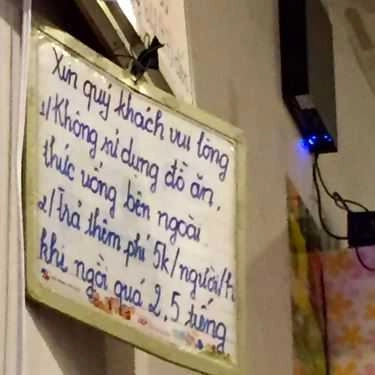 Xin quý khách vui lòng
1/ Không sử dụng đồ ăn,
thức uống bên ngoài
2/ Trả thêm phí 5k/người/h
khi ngồi quá 2,5 tiếng